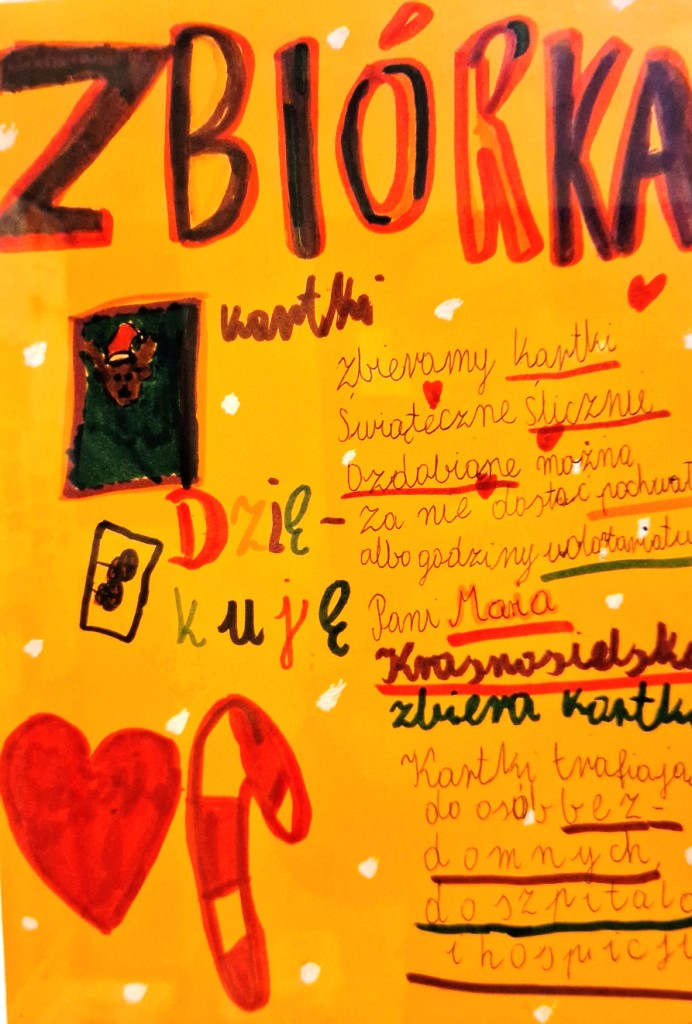 ZBIÓRKA
kartki
Zbieramy kartki
Świąteczne Ślicznie
Ozdobiane można
za nie dostać pochwał
albo godziny wolotariatu
Dzię-
kuję
Pani Maria
Krasnosielska
zbiera kartki
Kartki trafiają
do osób bez-
domnych
do szpitalo
i hospicji